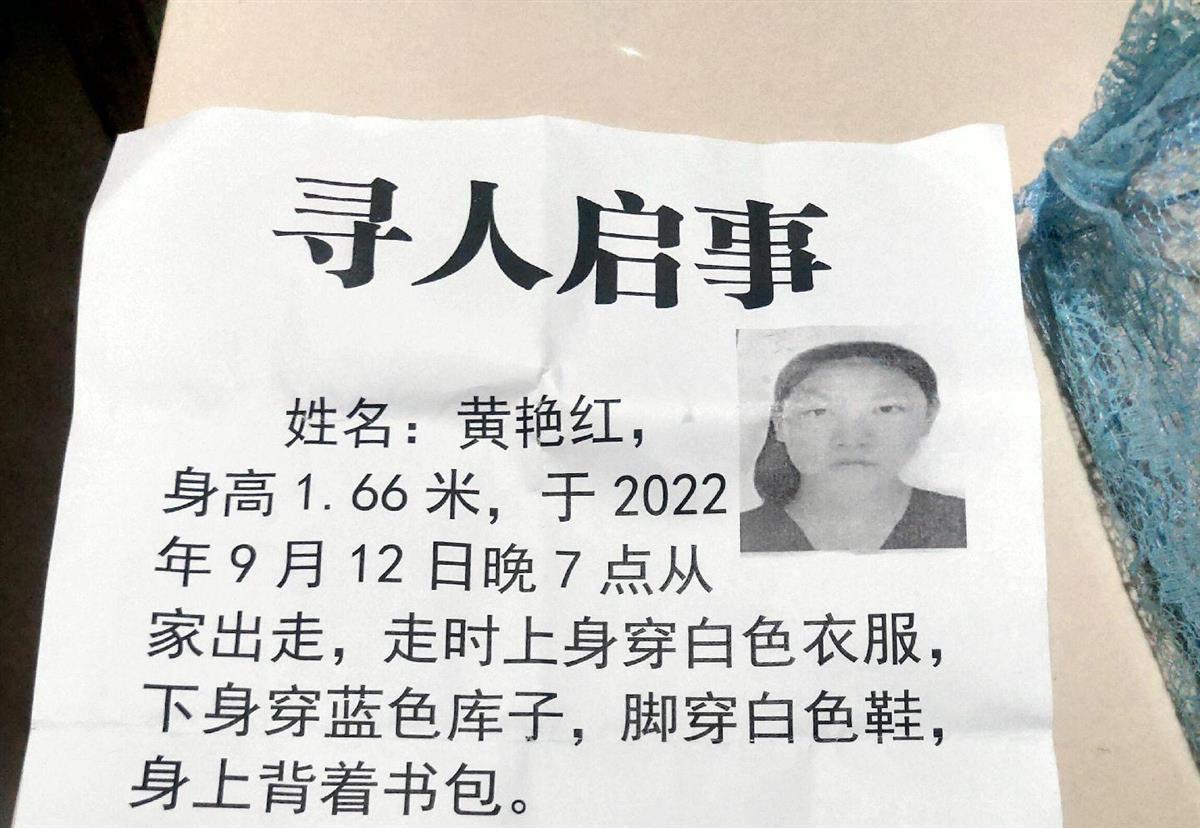 寻人启事
姓名：黄艳红，
身高1.66米，于2022
年9月12日晚7点从
家出走，走时上身穿白色衣服，
下身穿蓝色库子，脚穿白色鞋，
身上背着书包。